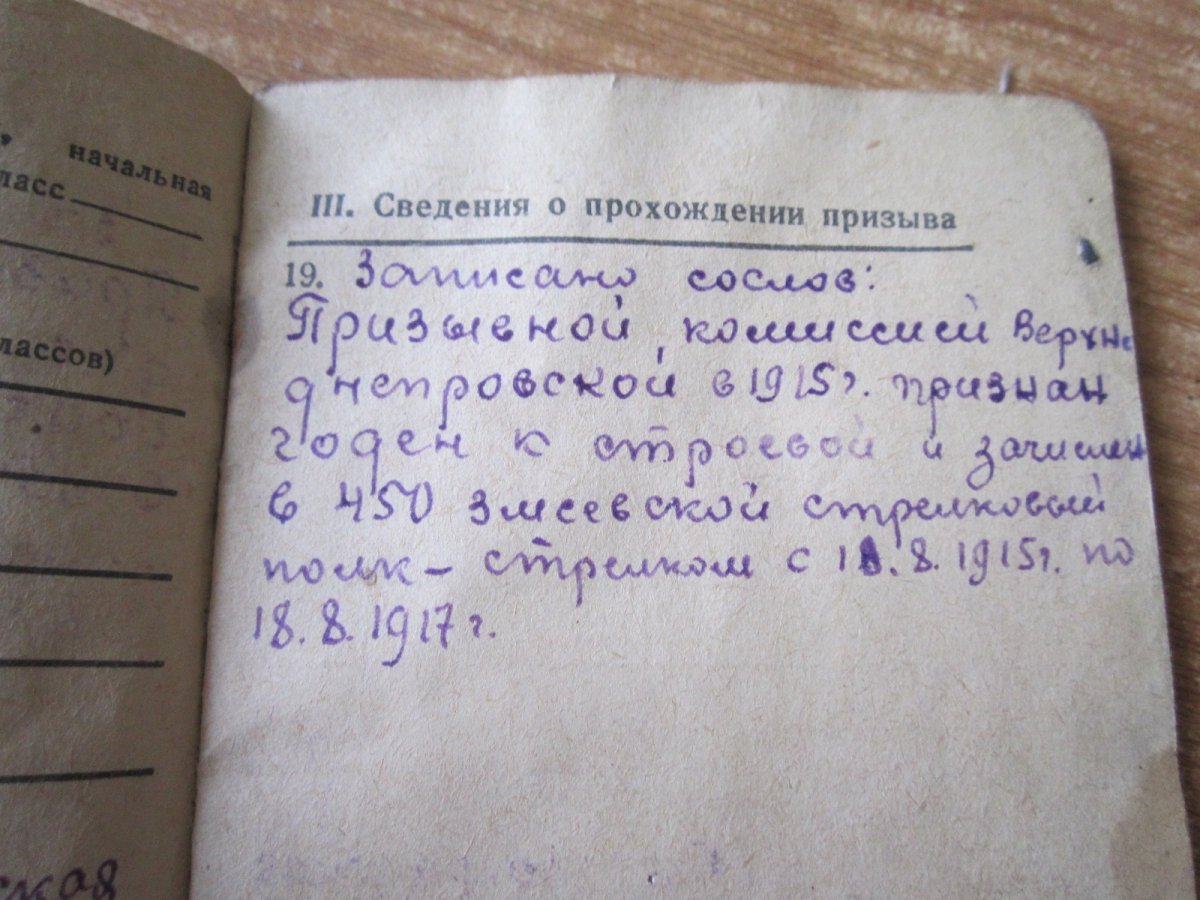 начальная
ласс
лассов)
ская
III. Сведения о прохождении призыва
19. Записано сослов:
Призывной комиссией Верхне
днепровской в 1915г. признан
годен к строевой и зачислен
в 450 Змеевской стрелковый
полк – стрелком с 18.8.1915г. по
18.8.1917г.